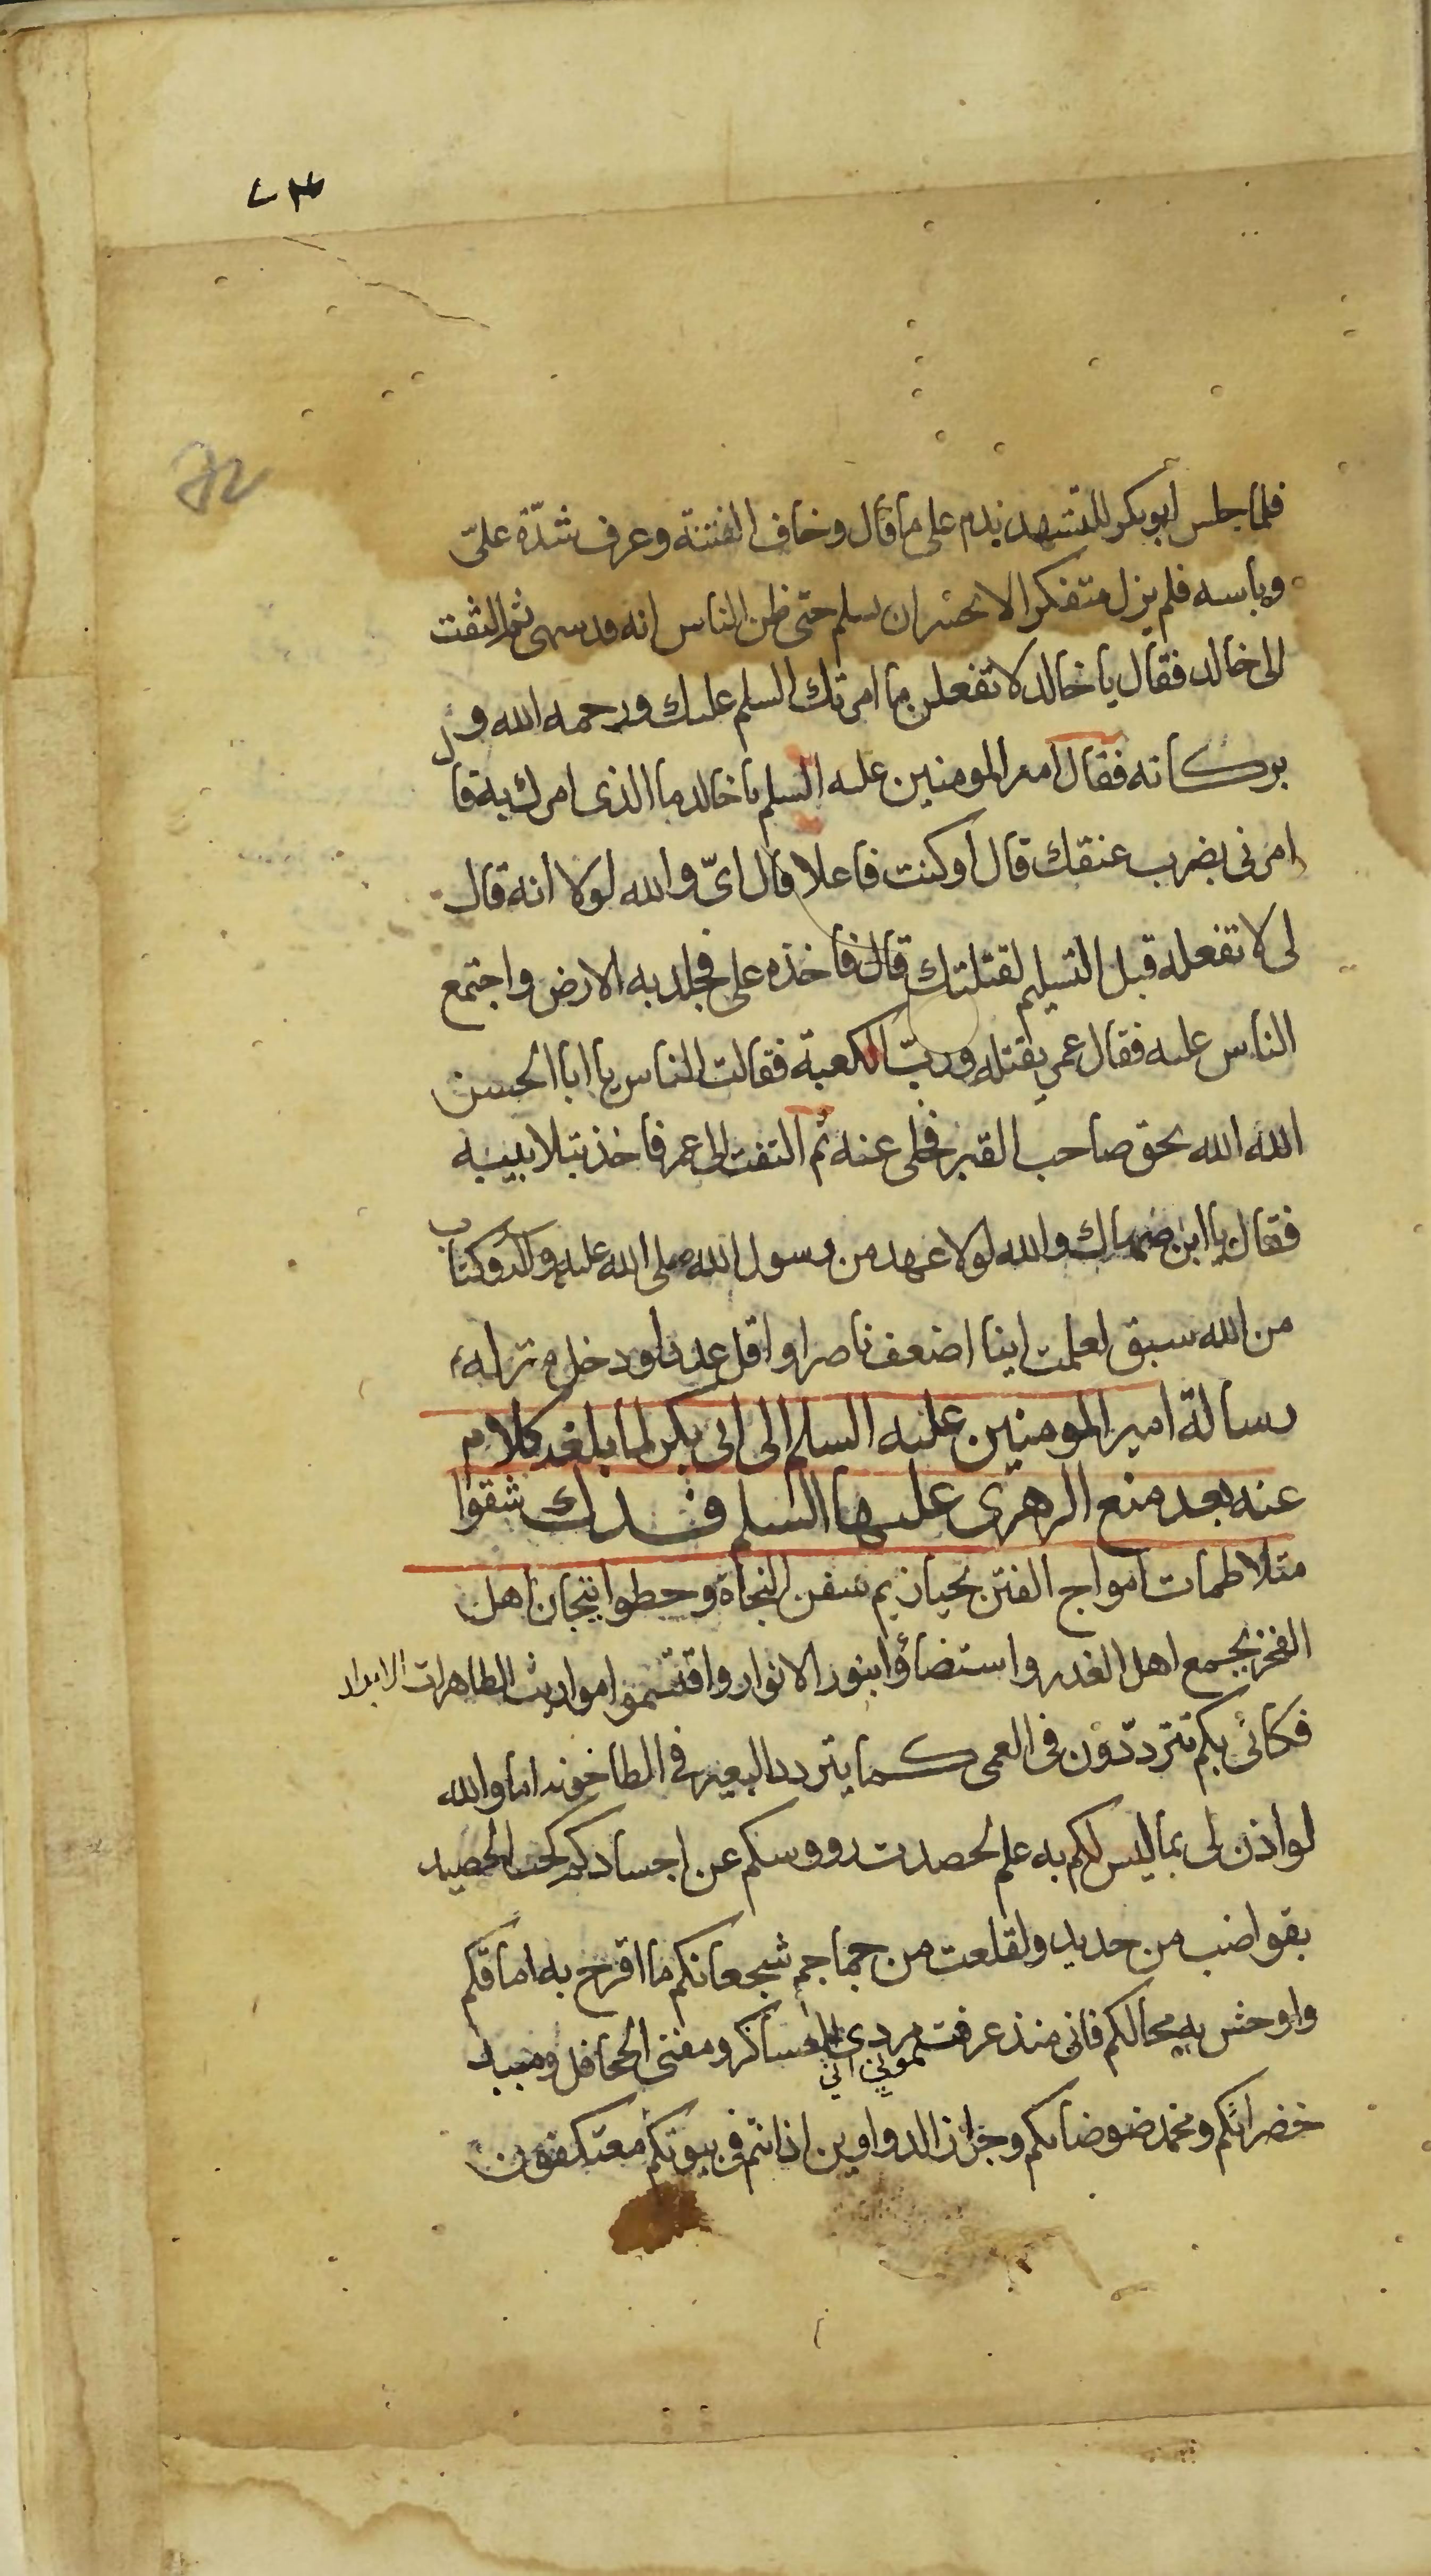 ٧٣
72
فلما جلس ابو بكر للتشهد ندم على ما قال وخاف الفتنة وعرف شدّة علىّ
وباسه فلم يزل متفكرا لا يجسر ان يسلم حتى ظن الناس انه قد سهى ثم التفت
الى خالد فقال يا خالد لا تفعلن ما امرتك السلم عليك ورحمه الله و
بركاته فقال امير المومنين عليه السلم يا خالد ما الذى امرك به قال
امرنى بضرب عنقك قال اوكنت فاعلا قال اىّ والله لولا انه قال
لى لا تفعله قبل التسليم لقتلتك قال فاخذه على فجلد به الارض واجتمع
الناس عليه فقال عمر يقتله وربّ الكعبة فقالت الناس يا ابا الحسن
الله الله بحق صاحب القبر فخلى عنه ثم التفت الى عمر فاخذ بتلابيبه
فقال يا ابن ضهاك والله لولا عهد من رسول الله صلى الله عليه وآله وكتاب
من الله سبق لعلمت اينا اضعف ناصرا واقل عددا ودخل منزله
رسالة امير المومنين عليه السلم الى ابى بكر لما بلغه كلام
عنه بعد منع الزهرى عليها السلم فدك شقوا
متلاطمات امواج الفتن بحيازيم سفن النجاة وحطوا تيجان اهل
الفخر بجمع اهل الغدر واستضاؤا بنور الانوار واقتسموا مواريث الطاهرات الابرار
فكانى بكم تترددّون فى العمى كما يتردد البعير فى الطاخونه اما والله
لو اذن لى بما ليس لكم به علم لحصدت رووسكم عن اجسادكم كحب الحصيد
بقواضب من حديد ولقلعت من جماجم شجعانكم ما اقرح به اماقكم
واوحش به محالكم فانى منذ عرفتمونى مردى العساكر ومفنى الجحافل ومبيد
خضرائكم ومخمد ضوضائكم وجزار الدواوين اذ انتم فى بيوتكم معتكفون